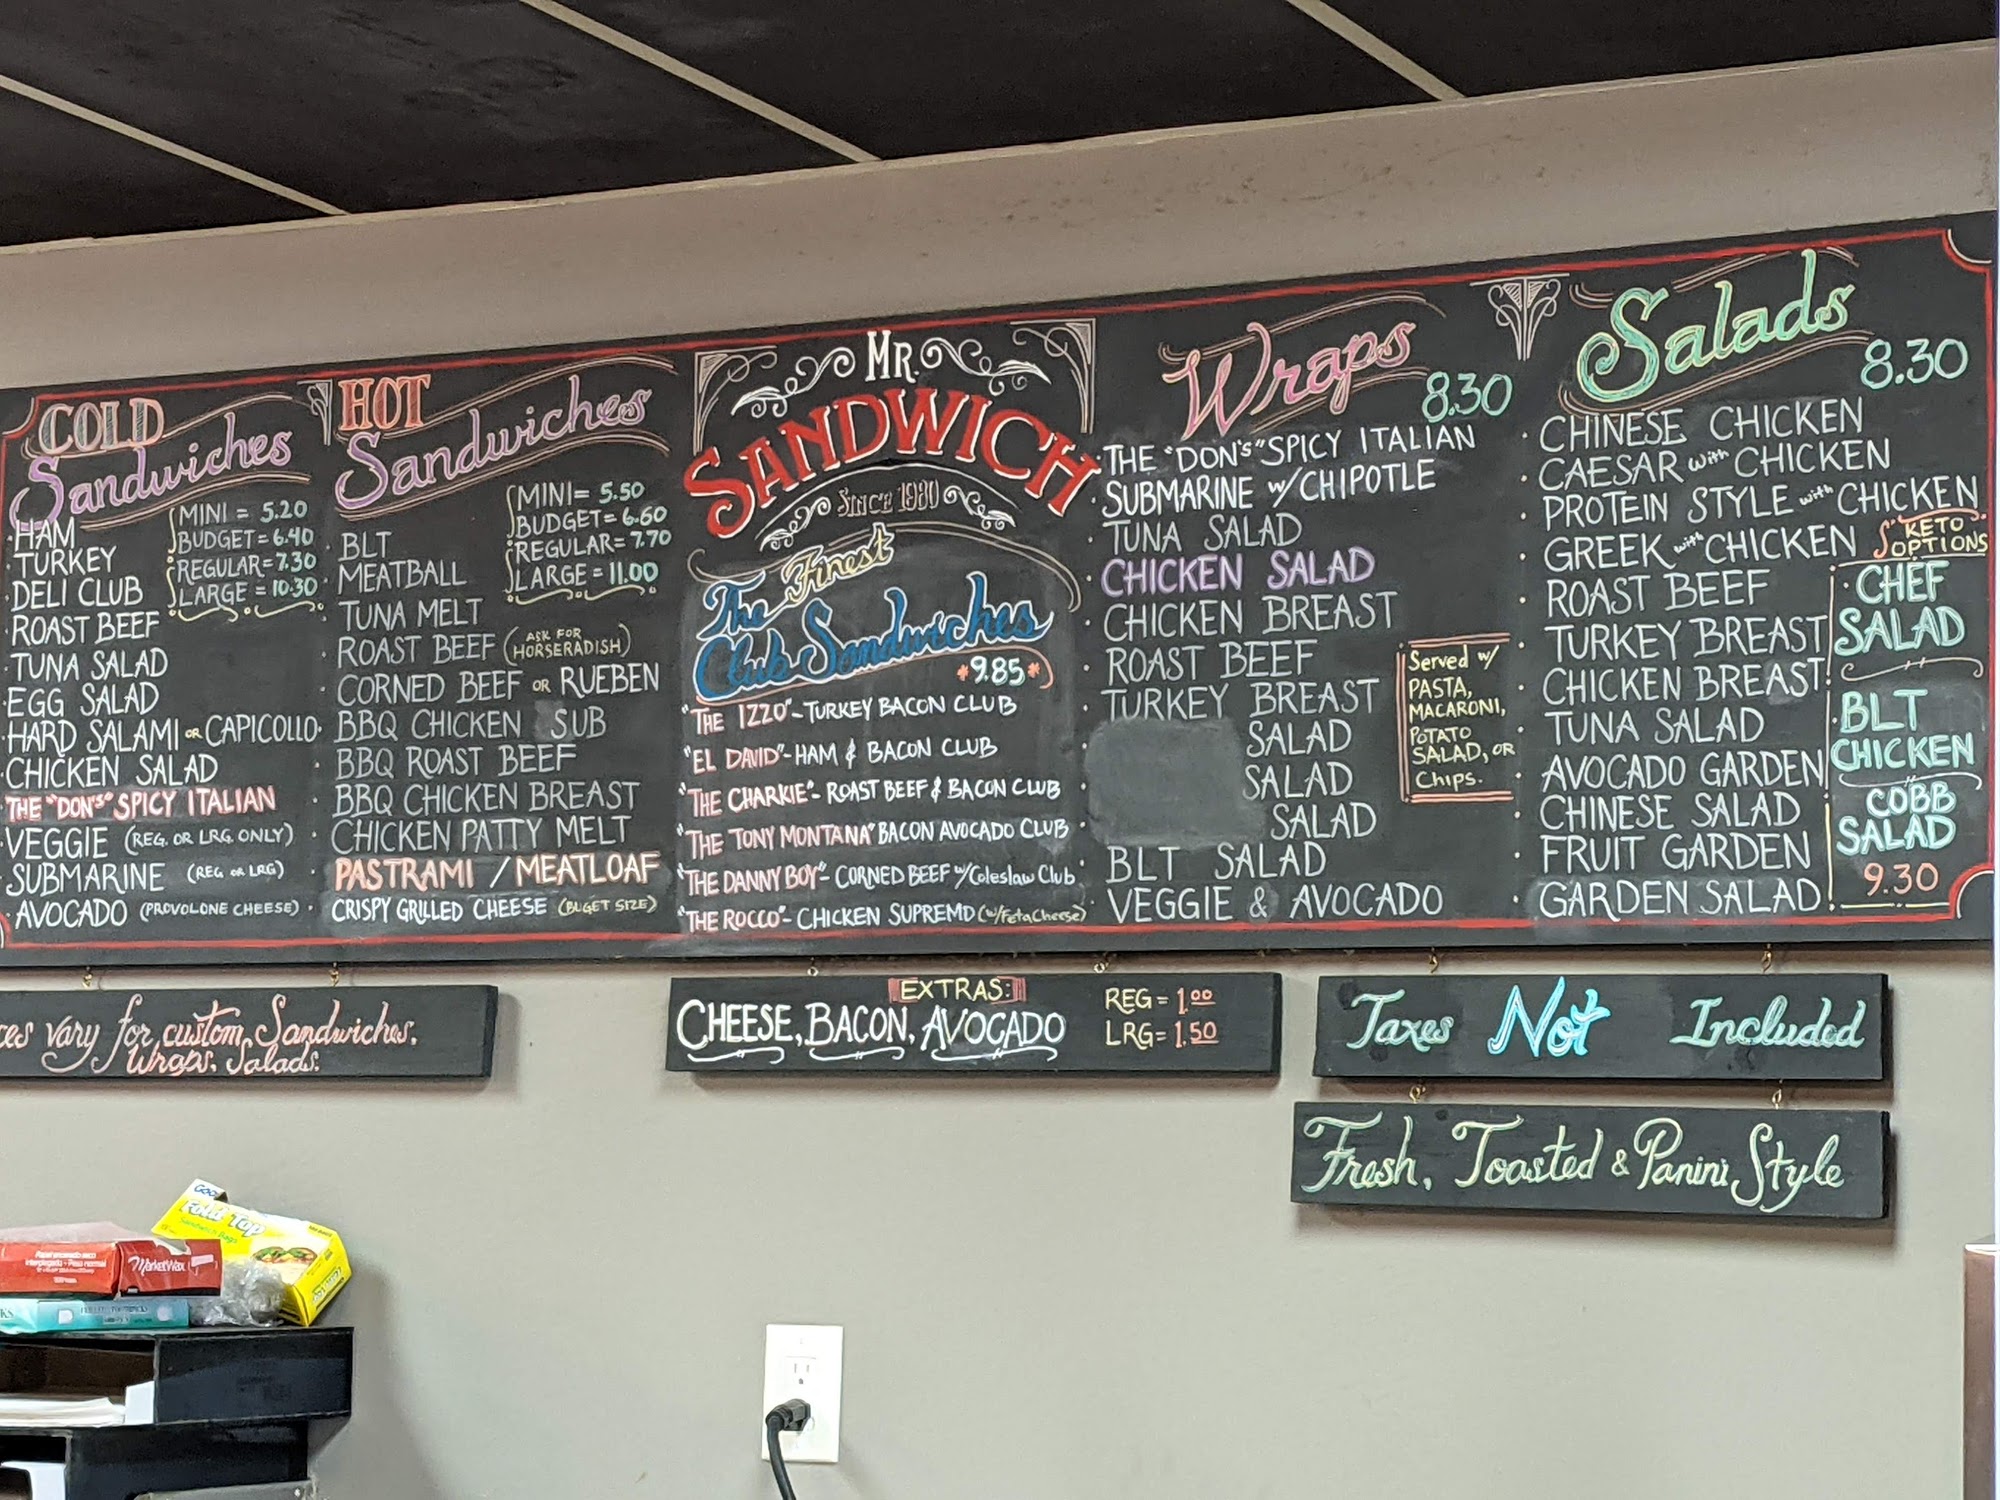 COLD
Sandwiches
MINI = 5.20
BUDGET = 6.40
REGULAR = 7.30
LARGE = 10.30
· HAM
· TURKEY
· DELI CLUB
· ROAST BEEF
· TUNA SALAD
· EGG SALAD
· HARD SALAMI OR CAPICOLLO
· CHICKEN SALAD
· THE "DON'S" SPICY ITALIAN
· VEGGIE (REG. OR LRG. ONLY)
· SUBMARINE (REG OR LRG)
· AVOCADO (PROVOLONE CHEESE)
HOT
Sandwiches
MINI = 5.50
BUDGET = 6.60
REGULAR = 7.70
LARGE = 11.00
· BLT
· MEATBALL
· TUNA MELT
· ROAST BEEF (ASK FOR HORSERADISH)
· CORNED BEEF OR RUEBEN
· BBQ CHICKEN SUB
· BBQ ROAST BEEF
· BBQ CHICKEN BREAST
· CHICKEN PATTY MELT
· PASTRAMI / MEATLOAF
· CRISPY GRILLED CHEESE (BUGET SIZE)
MR.
SANDWICH
SINCE 1980
The Finest
Club Sandwiches
*9.85*
"THE IZZO" - TURKEY BACON CLUB
"EL DAVID" - HAM & BACON CLUB
"THE CHARKIE" - ROAST BEEF & BACON CLUB
"THE TONY MONTANA" BACON AVOCADO CLUB
"THE DANNY BOY" - CORNED BEEF w/Coleslaw Club
"THE ROCCO" - CHICKEN SUPREMO (w/Feta Cheese)
Wraps
8.30
· THE "DON'S" SPICY ITALIAN
· SUBMARINE w/ CHIPOTLE
· TUNA SALAD
· CHICKEN SALAD
· CHICKEN BREAST
· ROAST BEEF
· TURKEY BREAST
· SALAD
· SALAD
· SALAD
· BLT SALAD
· VEGGIE & AVOCADO
Served w/
PASTA,
MACARONI,
POTATO
SALAD, OR
Chips.
Salads
8.30
· CHINESE CHICKEN
· CAESAR with CHICKEN
· PROTEIN STYLE with CHICKEN
· GREEK with CHICKEN
· ROAST BEEF
· TURKEY BREAST
· CHICKEN BREAST
· TUNA SALAD
· AVOCADO GARDEN
· CHINESE SALAD
· FRUIT GARDEN
· GARDEN SALAD
KETO
OPTIONS
CHEF
SALAD
BLT
CHICKEN
COBB
SALAD
9.30
ces vary for custom Sandwiches,
Wraps, Salads.
EXTRAS:
CHEESE, BACON, AVOCADO
REG = 1.00
LRG = 1.50
Taxes Not Included
Fresh, Toasted & Panini Style
Fold Top
Sandwich Bags
MarketWax